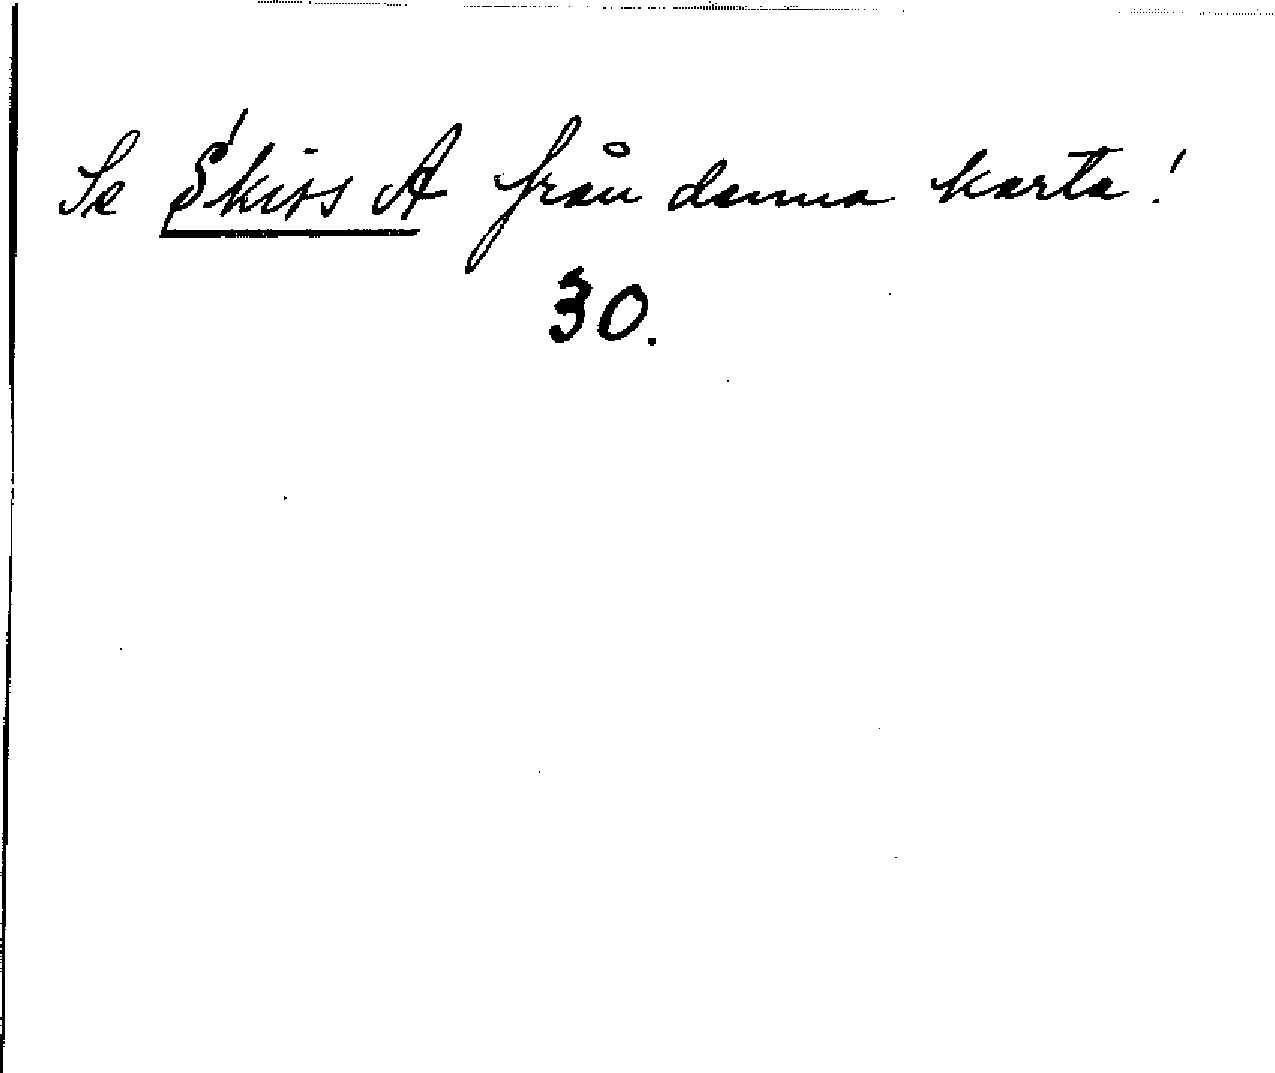 Se Skiss A från denna karta!
30.